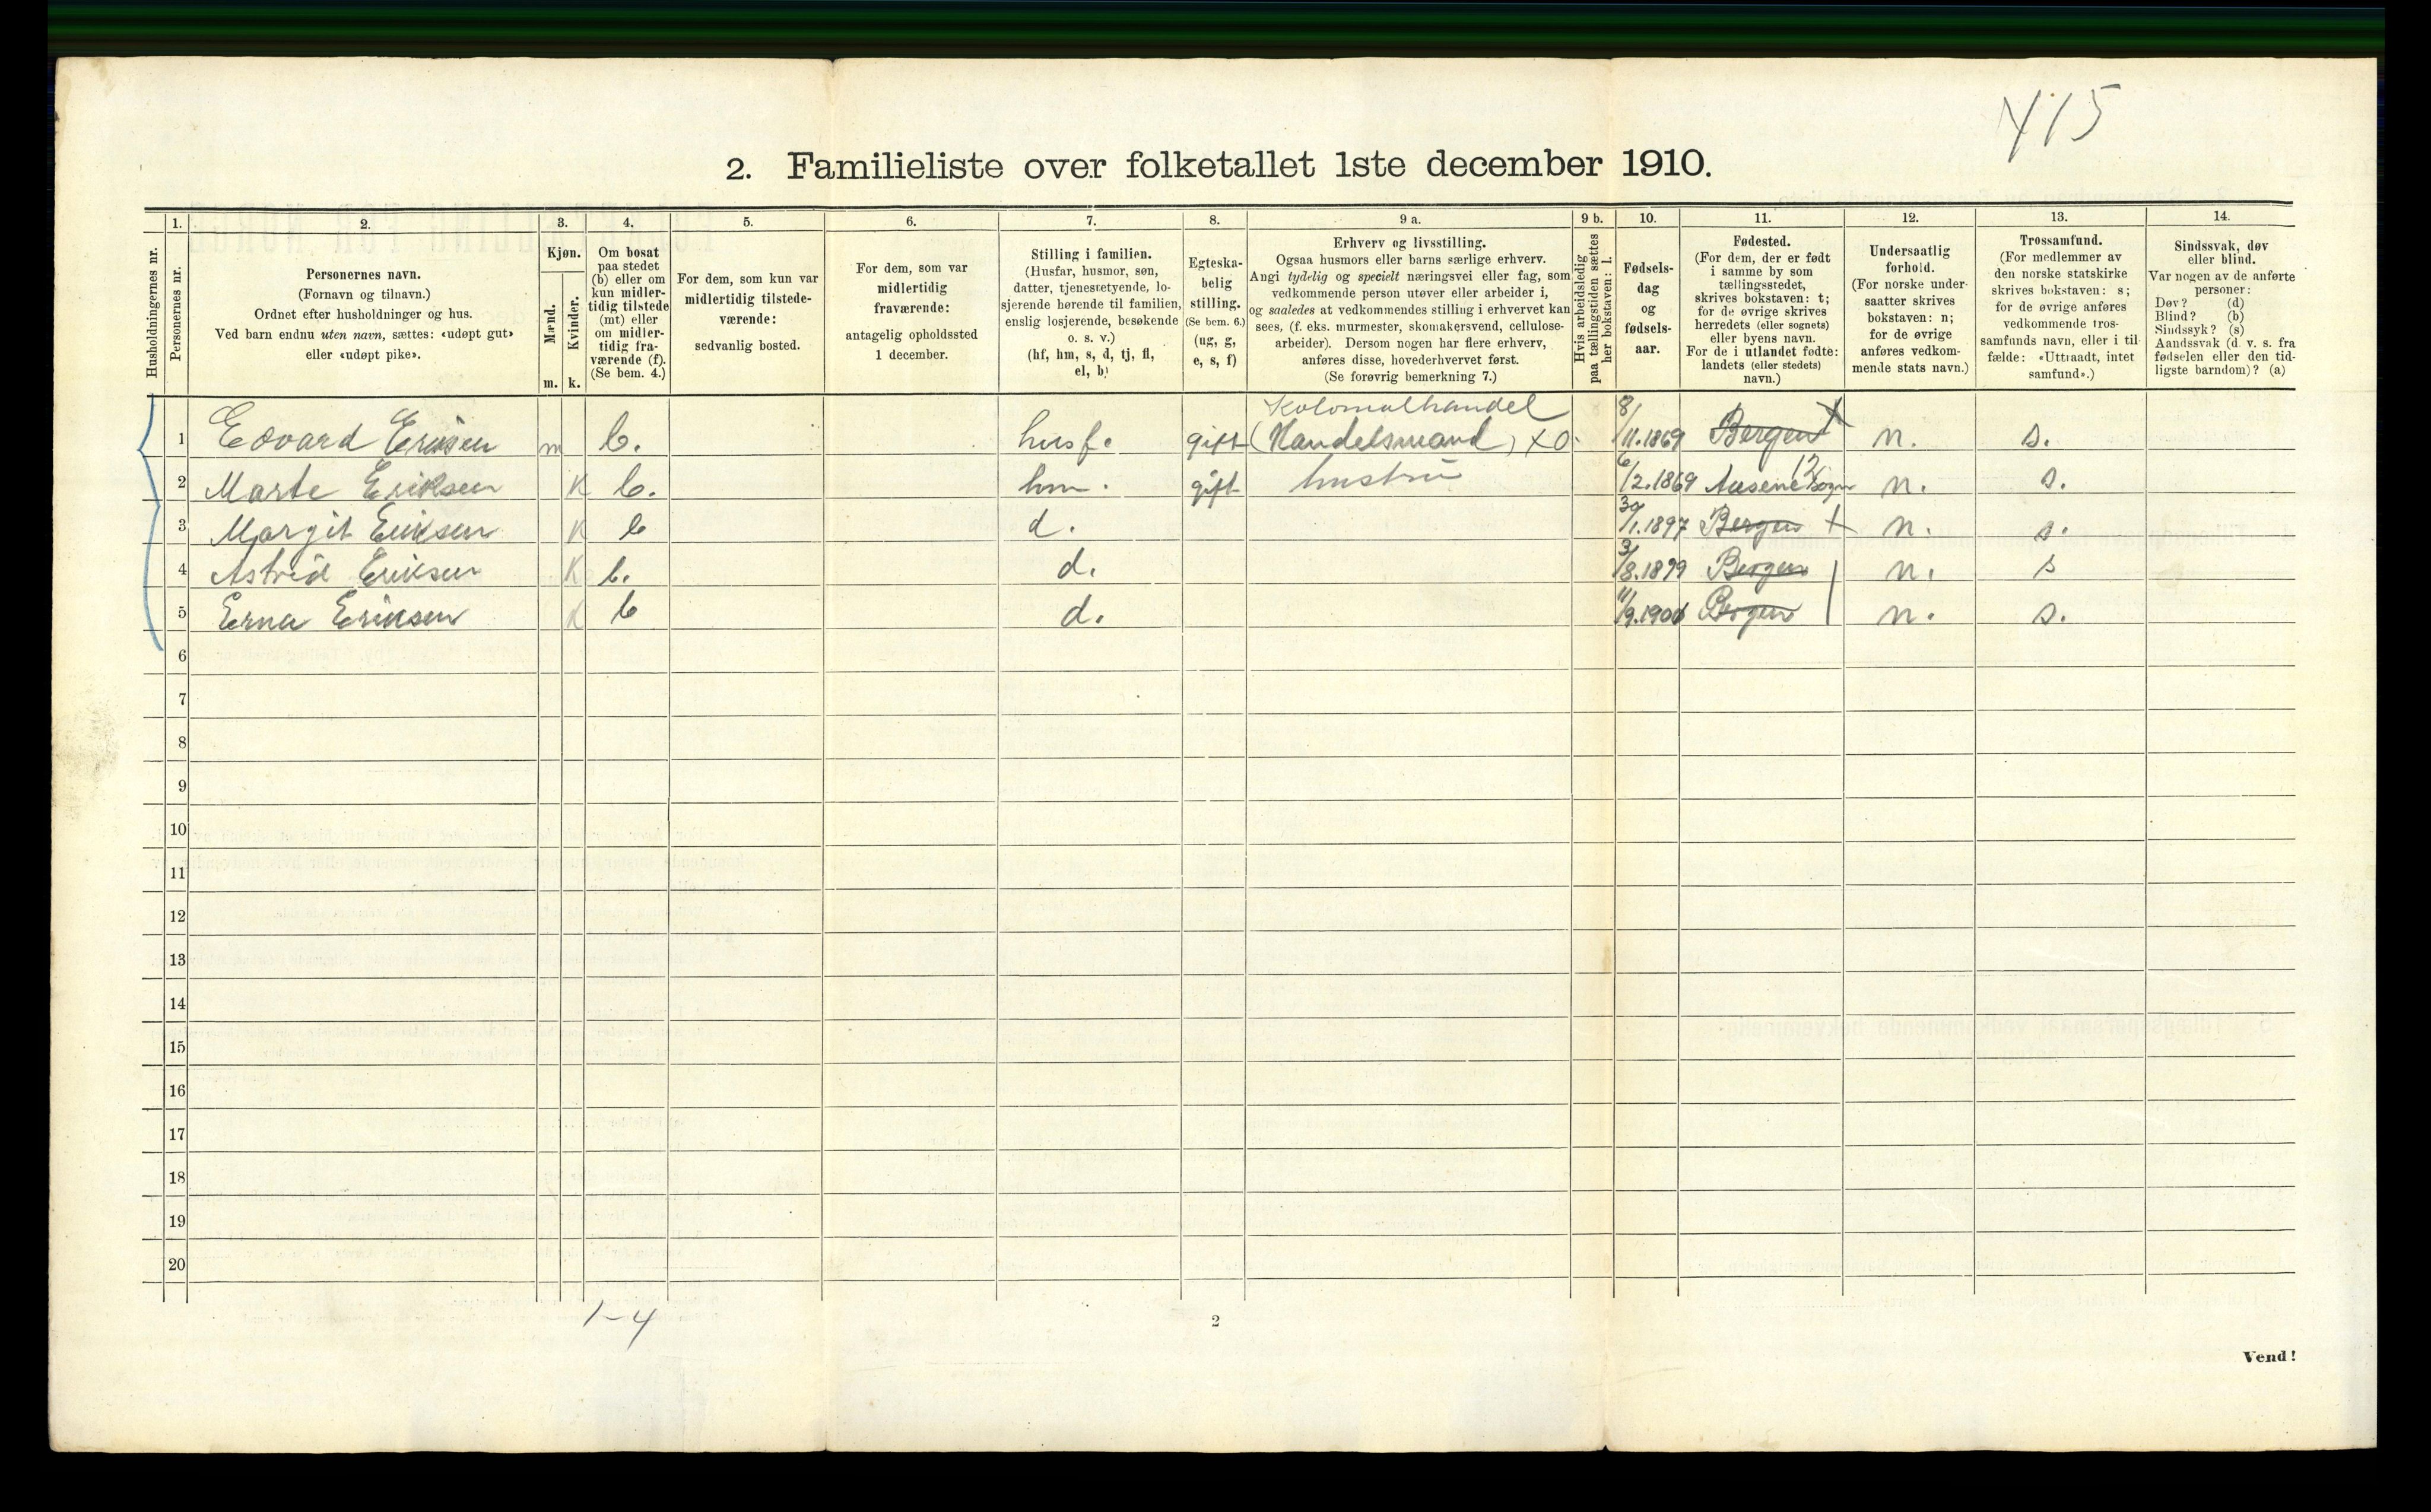 415
2. Familieliste over folketallet 1ste december 1910.
Husholdningernes nr.
1. Personernes nr.
2. Personernes navn.
(Fornavn og tilnavn.)
Ordnet efter husholdninger og hus.
Ved barn endnu uten navn, sættes: «udøpt gut»
eller «udøpt pike».
3. Kjøn.
Mænd. m.
Kvinder. k.
4. Om bosat
paa stedet
(b) eller om
kun midler-
tidig tilstede
(mt) eller
om midler-
tidig fra-
værende (f).
(Se bem. 4.)
5. For dem, som kun var
midlertidig tilstede-
værende:
sedvanlig bosted.
6. For dem, som var
midlertidig
fraværende:
antagelig opholdssted
1 december.
7. Stilling i familien.
(Husfar, husmor, søn,
datter, tjenestetyende, lo-
sjerende hørende til familien,
enslig losjerende, besøkende
o. s. v.)
(hf, hm, s, d, tj, fl,
el, b)
8. Egteska-
belig
stilling.
(Se bem. 6.)
(ug, g,
e, s, f)
9 a. Erhverv og livsstilling.
Ogsaa husmors eller barns særlige erhverv.
Angi tydelig og specielt næringsvei eller fag, som
vedkommende person utøver eller arbeider i,
og saaledes at vedkommendes stilling i erhvervet kan
sees, (f. eks. murmester, skomakersvend, cellulose-
arbeider). Dersom nogen har flere erhverv,
anføres disse, hovederhvervet først.
(Se forøvrig bemerkning 7.)
9 b. Hvis arbeidsledig
paa tællingstiden sættes
her bokstaven: l.
10. Fødsels-
dag
og
fødsels-
aar.
11. Fødested.
(For dem, der er født
i samme by som
tællingsstedet,
skrives bokstaven: t;
for de øvrige skrives
herredets (eller sognets)
eller byens navn.
For de i utlandet fødte:
landets (eller stedets)
navn.)
12. Undersaatlig
forhold.
(For norske under-
saatter skrives
bokstaven: n;
for de øvrige
anføres vedkom-
mende stats navn.)
13. Trossamfund.
(For medlemmer av
den norske statskirke
skrives bokstaven: s;
for de øvrige anføres
vedkommende tros-
samfunds navn, eller i til-
fælde: «Uttraadt, intet
samfund».)
14. Sindssvak, døv
eller blind.
Var nogen av de anførte
personer:
Døv? (d)
Blind? (b)
Sindssyk? (s)
Aandssvak (d. v. s. fra
fødselen eller den tid-
ligste barndom)? (a)
Kolonialhandel
1 Edvard Eriksen m b. husf. gift (Handelsmand) XO. 8/11.1869 Bergen t n. s.
2 Marte Eriksen K b. hm. gift hustru 6/2.1869 Sogn 12 n. s.
3 Margit Eriksen K b d. 30/1.1897 Bergen t n. s.
4 Astrid Eriksen K b. d. 3/8.1899 Bergen n. s
5 Erna Eriksen K b d. 11/9.1901 Bergen n. s.
6
7
8
9
10
11
12
13
14
15
16
17
18
19
20
1-4
2
Vend!